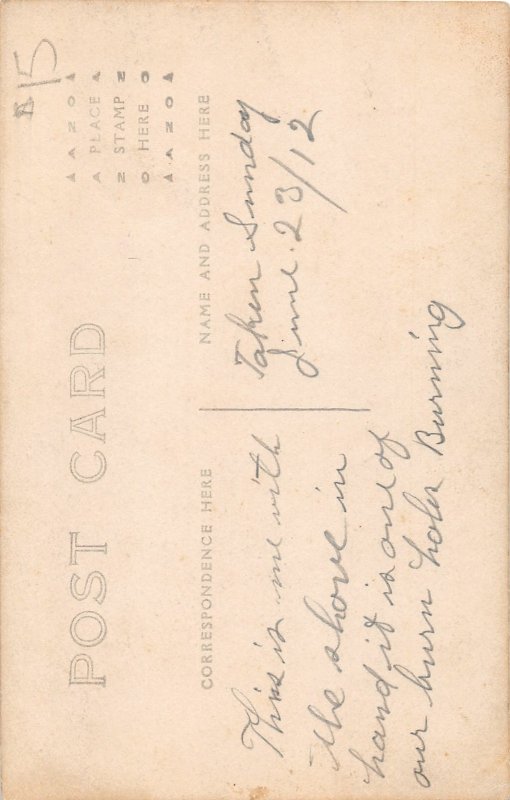 15
AZO
PLACE
STAMP
HERE
AZO
POST CARD
CORRESPONDENCE HERE
NAME AND ADDRESS HERE
This is me with
the shovel in
hand it is one of
our burn holes Burning
Taken Sunday
June. 23/12